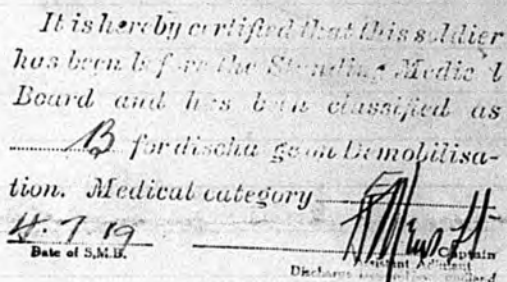 It is hereby certified that this soldier
has been before the Standing Medical
Board and has been classified as
B for discharge on Demobilisa-
tion. Medical category
4.7.19
Date of S.M.B. Captain
Discharge